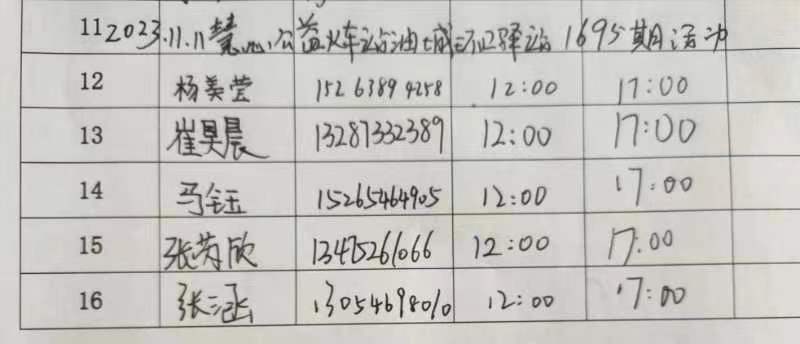 11 2023.11.11慧心公益火车站油城志愿驿站1695期活动
12 杨美莹 15263894258 12:00 17:00
13 崔昊晨 13287332389 12:00 17:00
14 马钰 15265464905 12:00 17:00
15 张芮欣 13475261066 12:00 17:00
16 张涵 13054698010 12:00 17:00